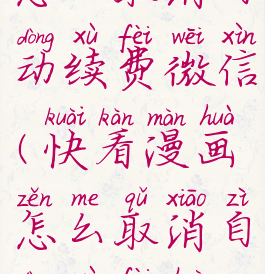 dòng xù fèi wēi xìn
动续费微信
kuài kàn màn huà
(快看漫画
zěn me qǔ xiāo zì
怎么取消自